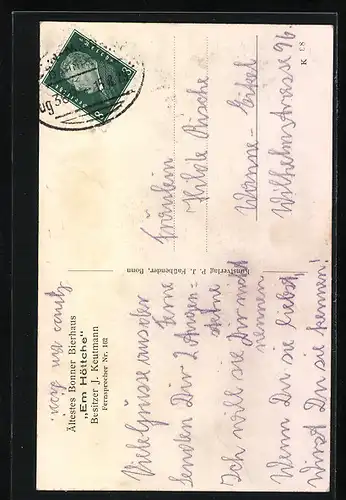 Ältestes Bonner Bierhaus
„Em Höttche"
Besitzer J. Keutmann
Fernsprecher Nr. 182
Viele Grüsse aus der
Ferne
senden Dir 2
Ich will sie Dir nicht
nennen
Wenn Du sie liebst,
wirst Du sie kennen!
Kunstverlag P. J. Faßbender, Bonn
Fräulein
Hilde
Wanne-Eikel
Wilhelmstrasse 96.
K 68
Deutsches Reich
8
8